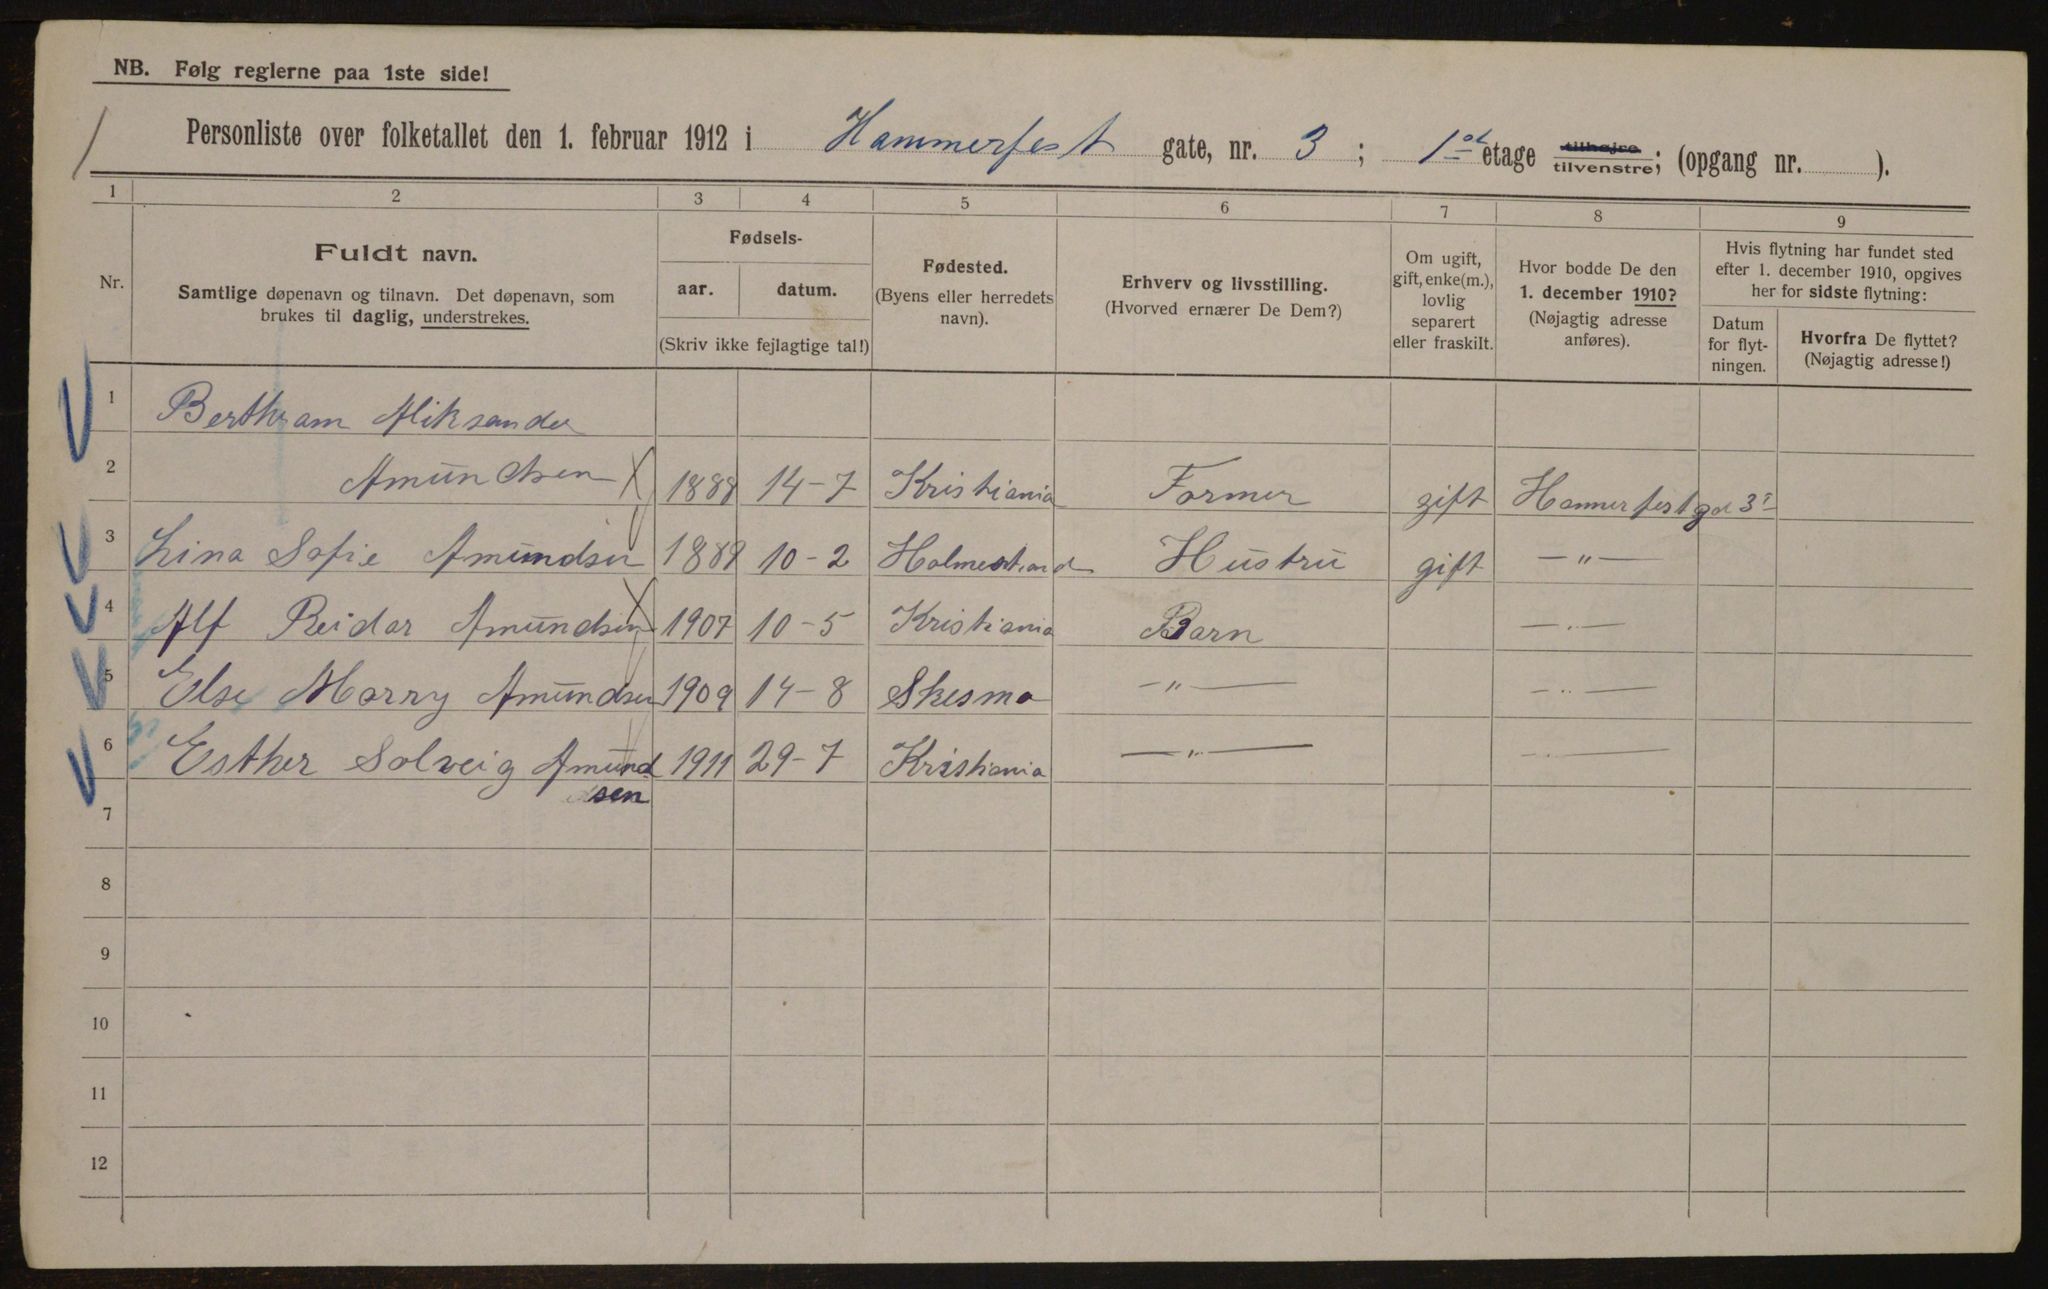 NB. Følg reglerne paa 1ste side!
Personliste over folketallet den 1. februar 1912 i Hammerfest gate, nr. 3 ; 1st etage tilhøjre tilvenstre; (opgang nr. ).
1 2 3 4 5 6 7 8 9
Nr.
Fuldt navn.
Samtlige døpenavn og tilnavn. Det døpenavn, som
brukes til daglig, understrekes.
Fødsels-
aar. datum.
(Skriv ikke fejlagtige tal!)
Fødested.
(Byens eller herredets
navn).
Erhverv og livsstilling.
(Hvorved ernærer De Dem?)
Om ugift,
gift, enke(m.),
lovlig
separert
eller fraskilt.
Hvor bodde De den
1. december 1910?
(Nøjagtig adresse
anføres).
Hvis flytning har fundet sted
efter 1. december 1910, opgives
her for sidste flytning:
Datum
for flyt-
ningen.
Hvorfra De flyttet?
(Nøjagtig adresse!)
1 Berthram Aliksander
2 Amundsen 1888 14-7 Kristiania Former gift Hammerfestgd 3
3 Lina Sofie Amundsen 1889 10-2 Holmestrand Hustru gift —"—
4 Alf Reidar Amundsen 1907 10-5 Kristiania Barn —"—
5 Else Marry Amundsen 1909 14-8 Skesmo —"— —"—
6 Esther Solveig Amund 1911 29-7 Kristiania —"— —"—
sen
7
8
9
10
11
12